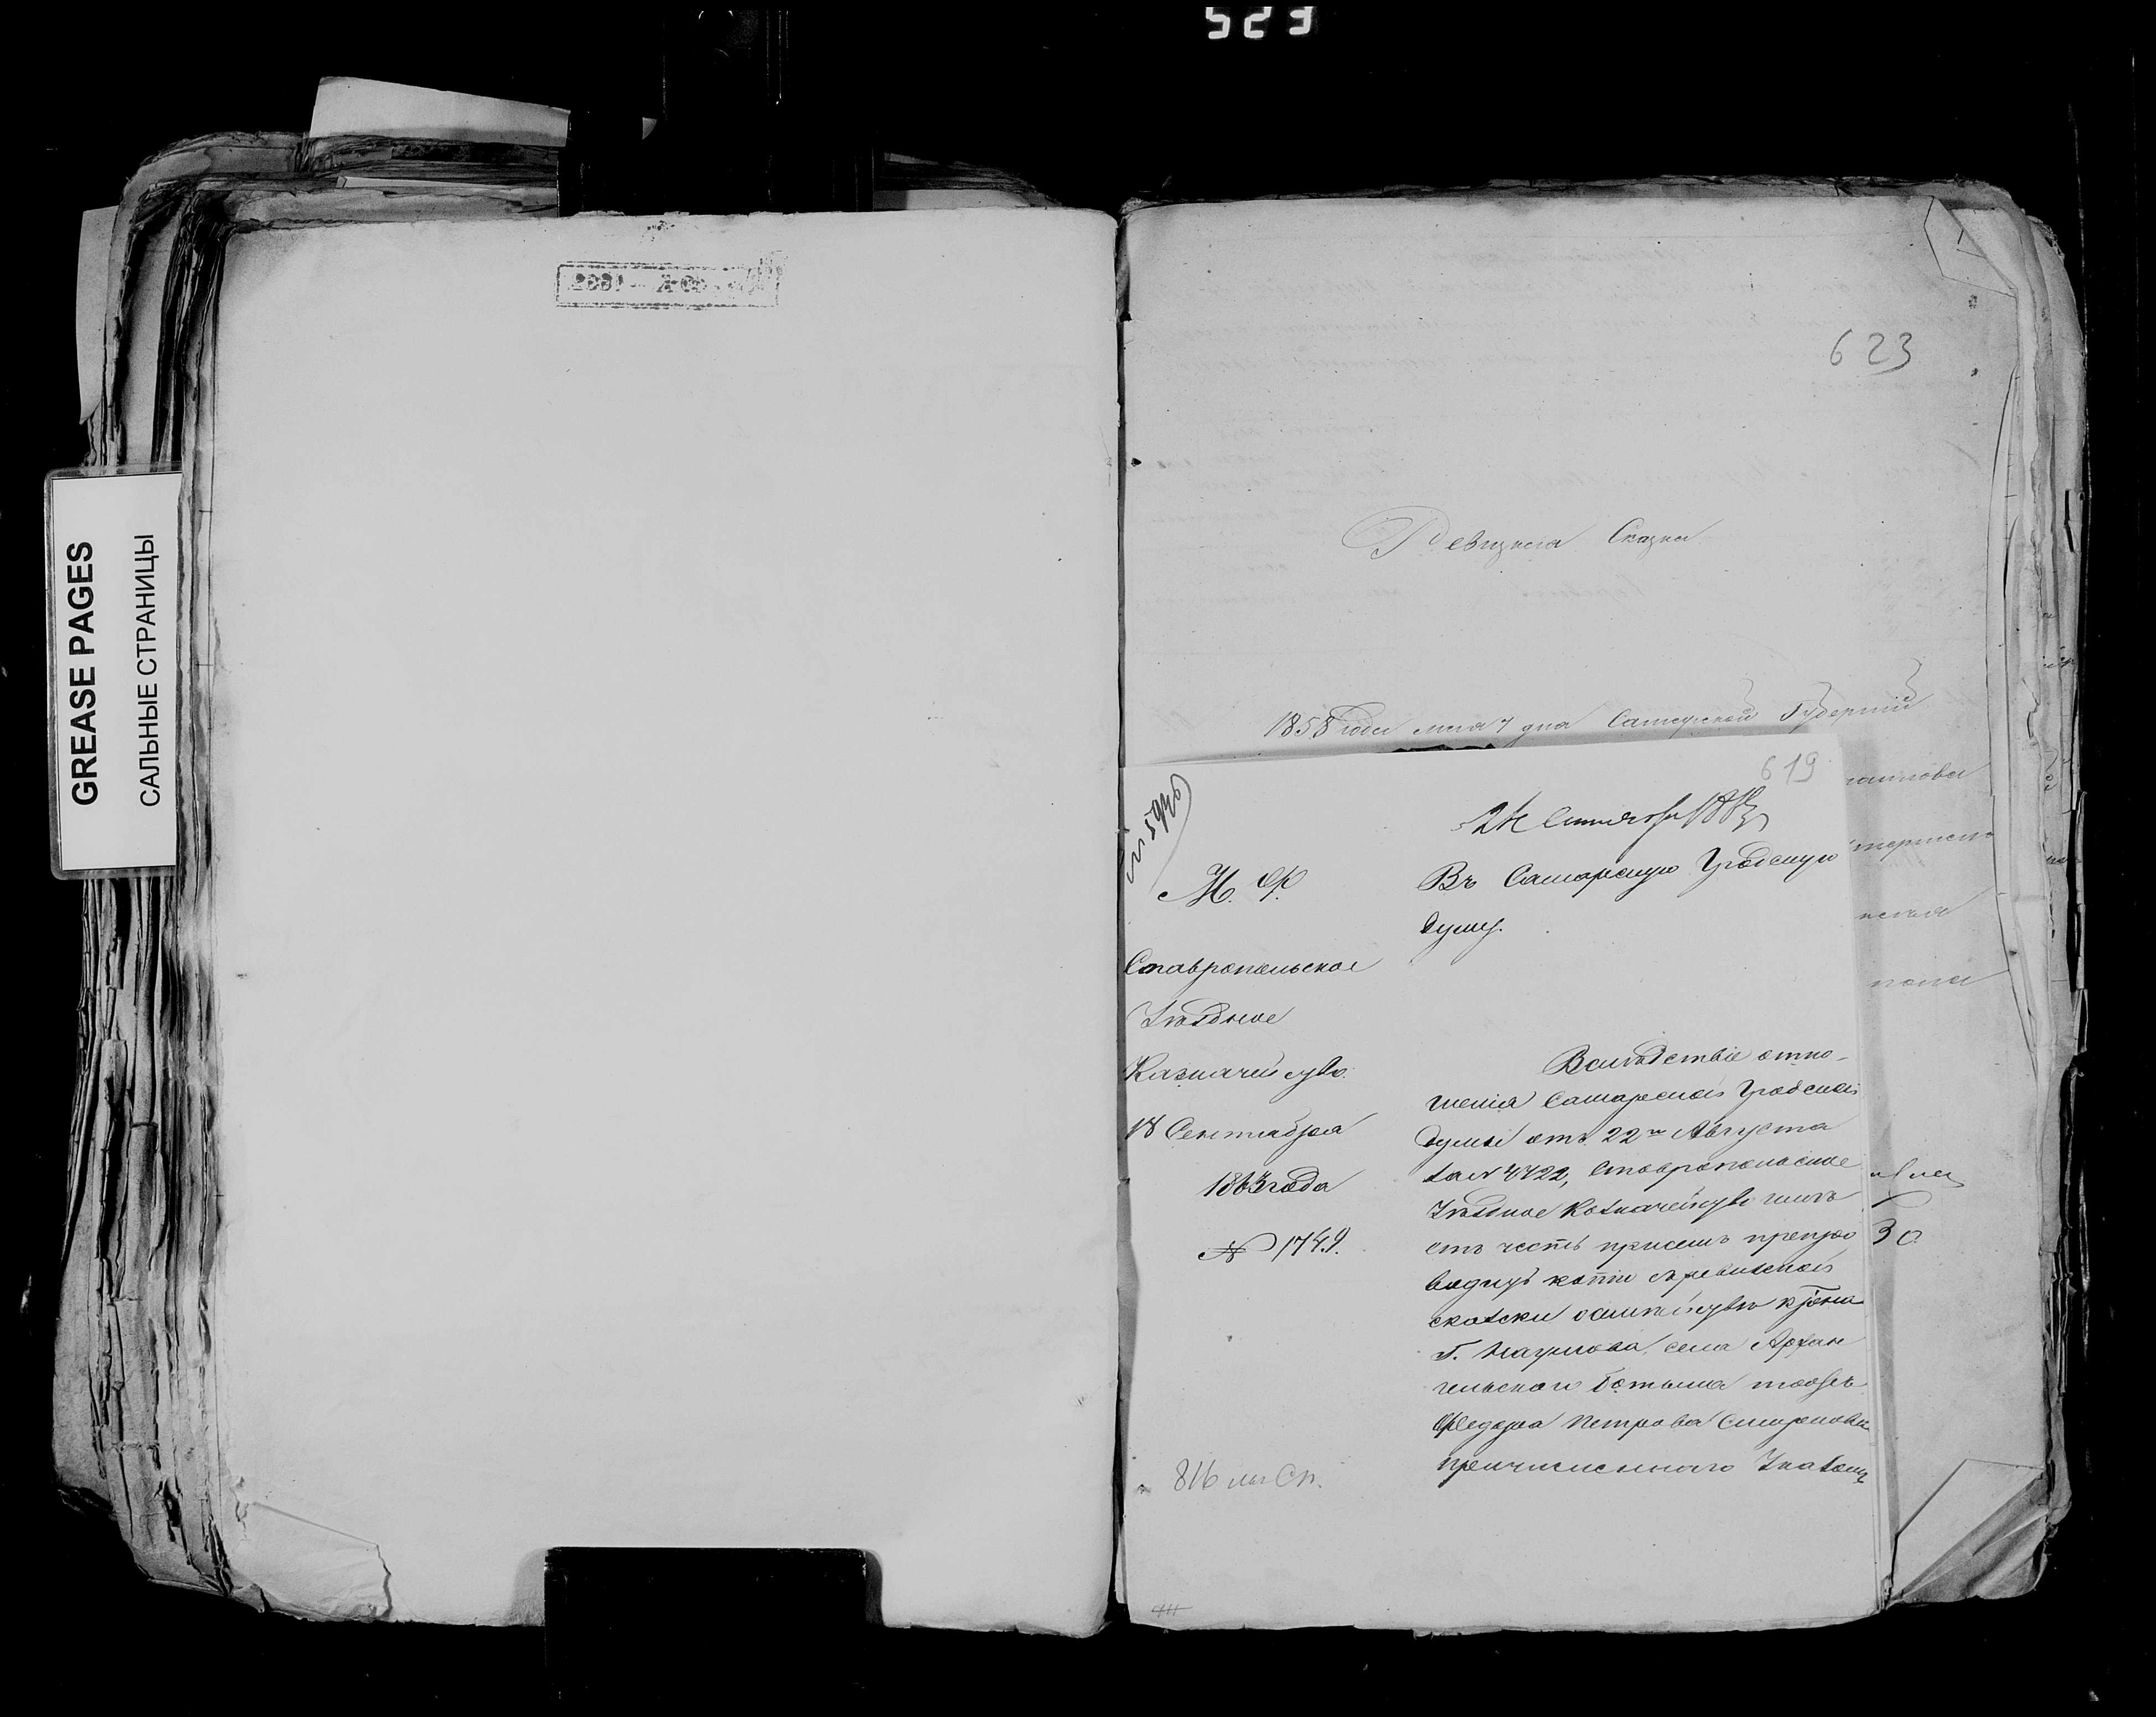 523
GREASE PAGES
САЛЬНЫЕ СТРАНИЦЫ
623
Ревизская Сказка
1858 года мая 7 дня Самарской Губерніи
619
№ 5946
24 Сентября 1863
М. Ф.
Ставропольское
Уѣздное
Казначейство
18 Сентября
1863 года
№ 1749.
816 по Сп.
Въ Самарскую Градскую
Думу.
Вслѣдствіе отно-
шенія Самарской Градской
Думы отъ 22го Августа
за № 4722, Ставропольское
Уѣздное Казначейство имѣ
етъ честь присемъ препро
водить копію съ ревизской
сказки о семействѣ крѣпа
Г. Наумова, села Архан
гельскаго тожъ
Федора Петрова Смирнова
причисленнаго Указомъ